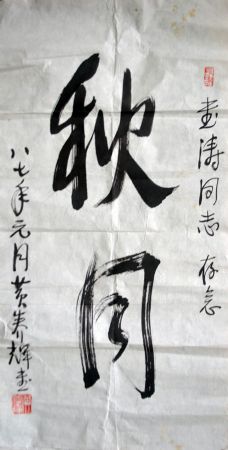 涛同志 存念
秋月
八七年元月黄养辉書